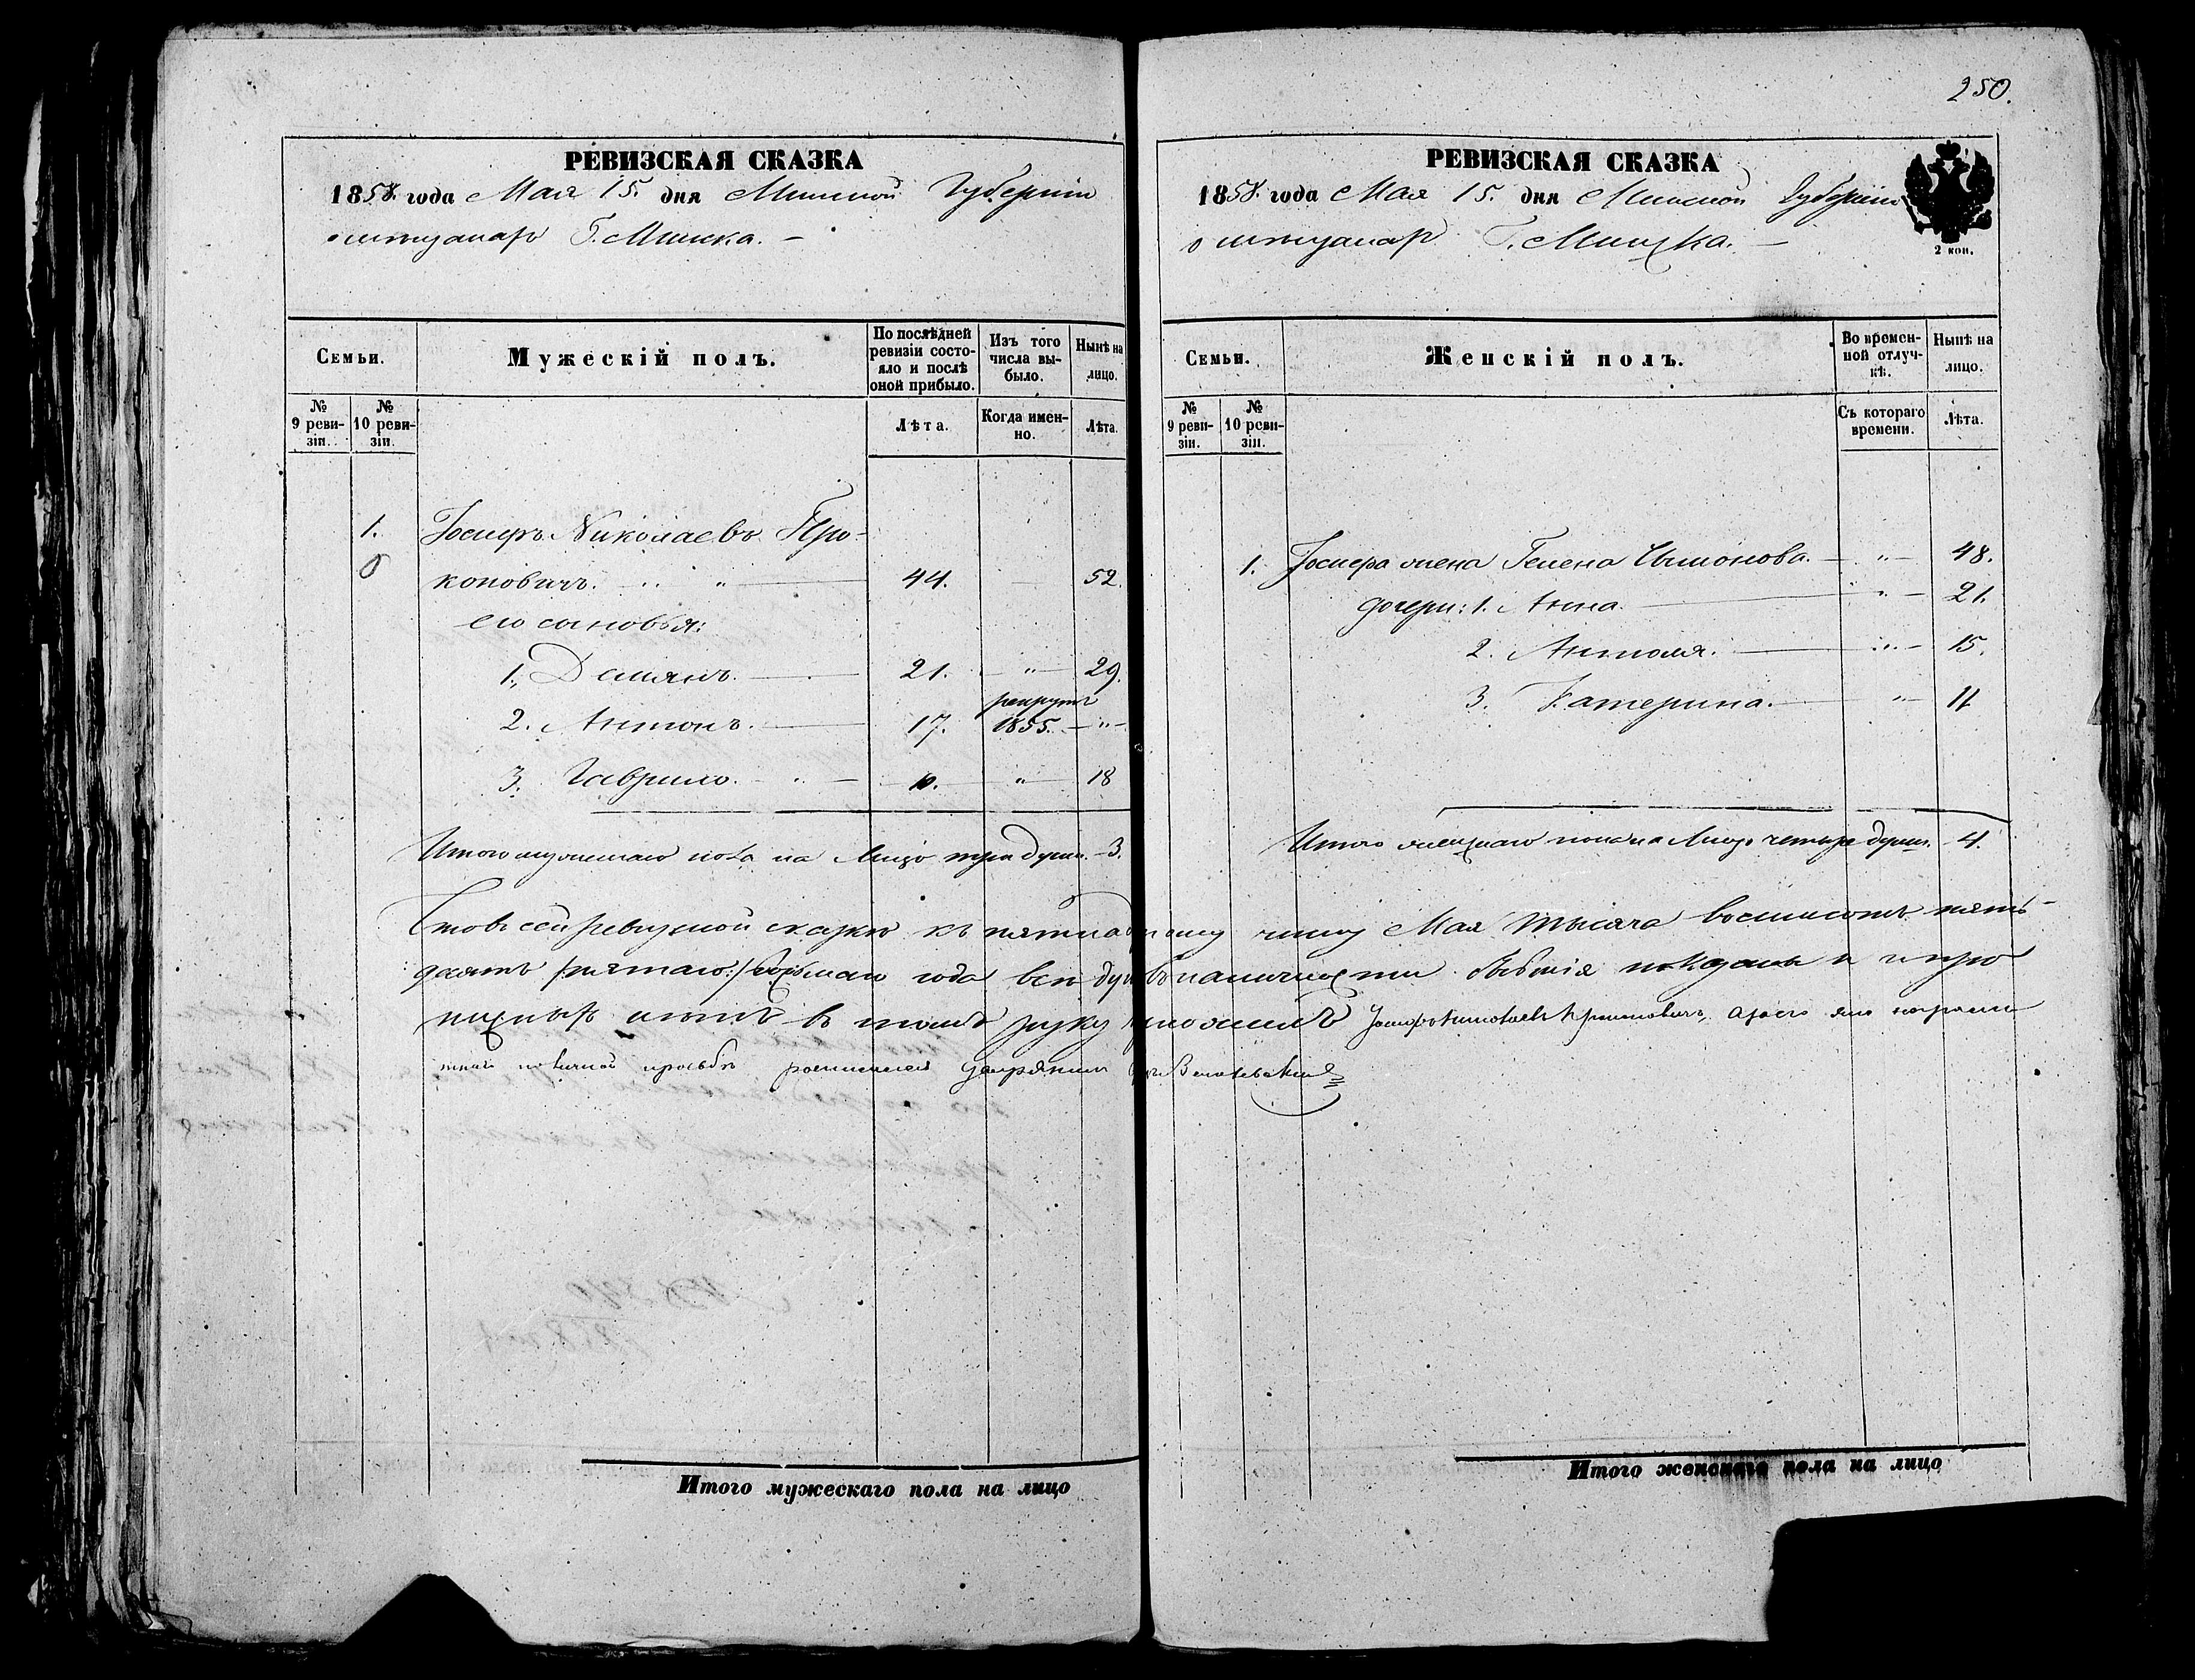 250.
РЕВИЗСКАЯ СКАЗКА
1858. года Мая 15. дня Минской Губерніи
о мѣщанахъ Г. Минска. —
Семьи.
Мужескій полъ.
По послѣдней ревизіи состояло и послѣ оной прибыло.
Изъ того числа выбыло.
Нынѣ на лицо.
№ 9 ревизіи.
№ 10 ревизіи.
Лѣта.
Когда именно.
Лѣта.
1. Іосифъ Николаевъ Про-
коповичъ. 44. 52.
его сыновья:
1. Демянъ. 21. " 29.
рекрутъ
2. Антонъ. 17. 1855. "
3. Гаврило. 10. " 18
Итого мужескаго пола на лицо три души. 3.
РЕВИЗСКАЯ СКАЗКА
1858. года Мая 15. дня Минской Губерніи
о мѣщанахъ Г. Минска. —
2 коп.
Семьи.
Женскій полъ.
Во временной отлучкѣ.
Нынѣ на лицо.
№ 9 ревизіи.
№ 10 ревизіи.
Съ котораго времени.
Лѣта.
1. Іосифа жена Гелена Сымонова. " 48.
дочери: 1. Анна. " 21.
2. Антоля. " 15.
3. Катерина. " 11
Итого женскаго пола на лицо четыре души. 4.
сей ревизской сказкѣ къ пятнадцатому числу Мая тысяча восемьсотъ пять-
десятъ восьмаго года всѣ души въ наличности бывшія показаны и про
нѣтъ въ томъ руку приложилъ
просьбѣ
Итого мужескаго пола на лицо
Итого женскаго пола на лицо